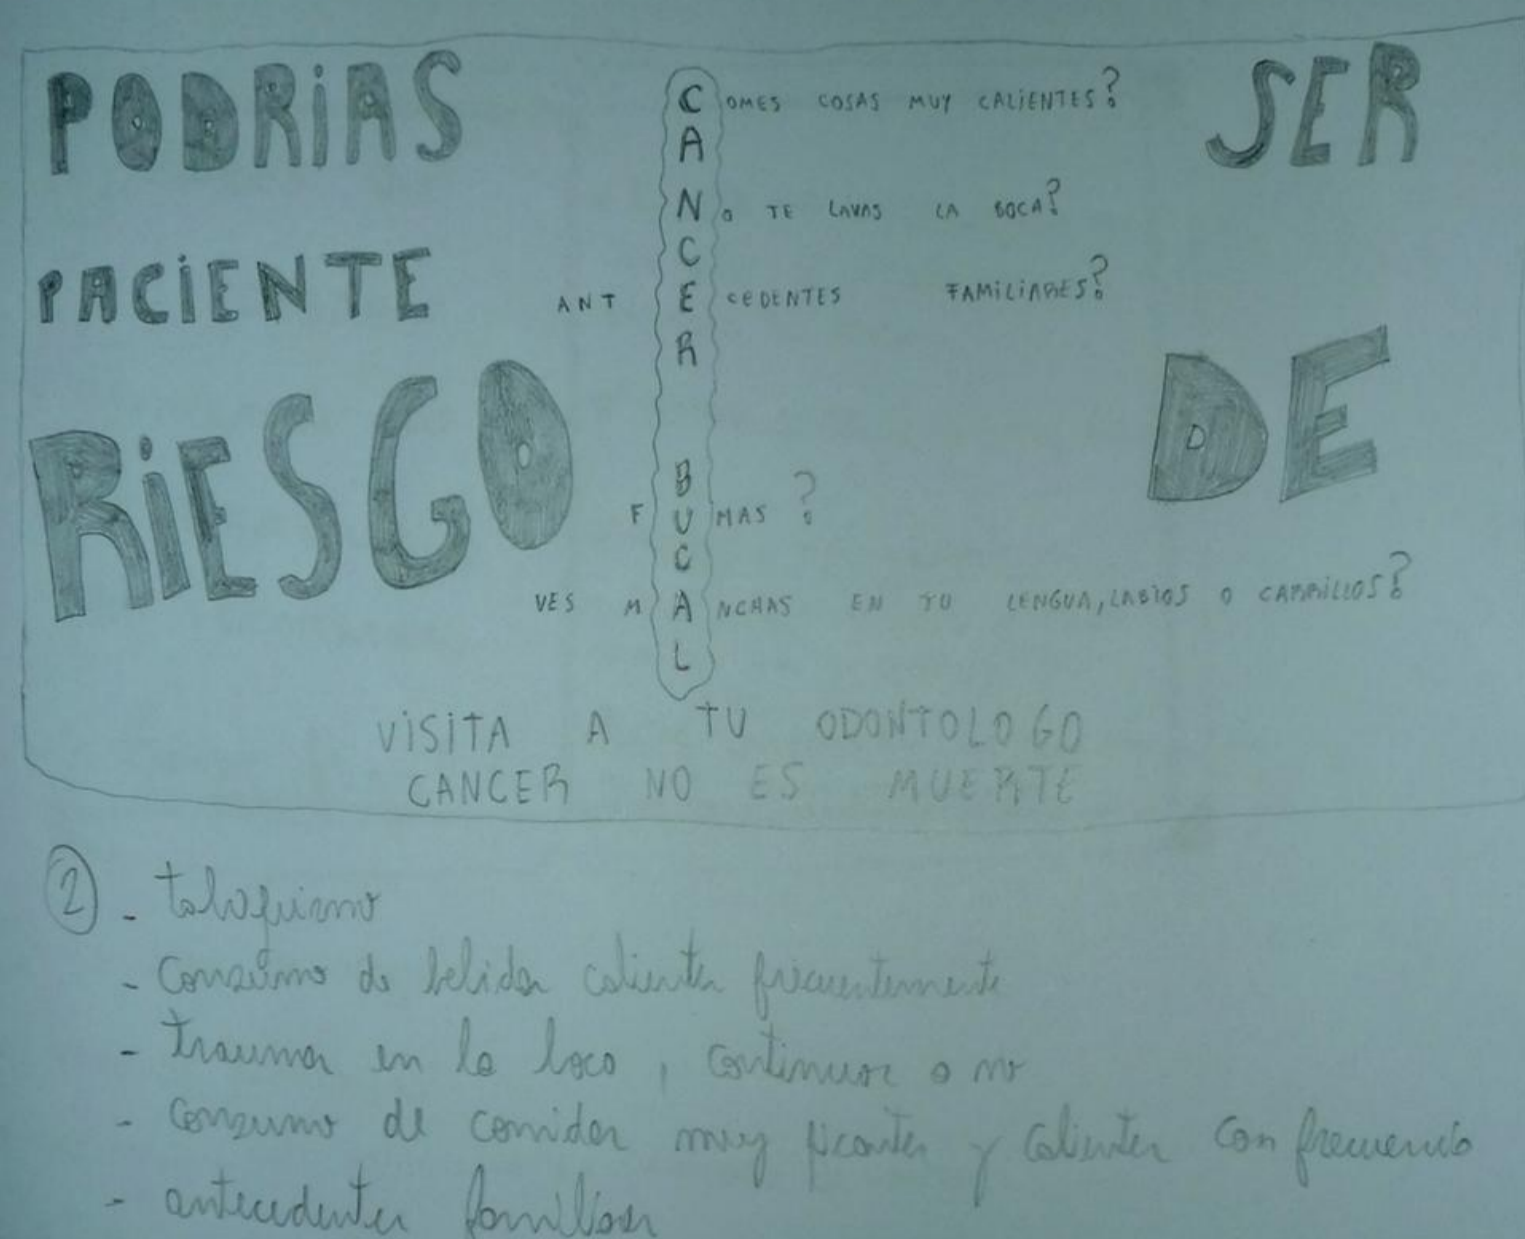 PODRiAS SER
PACiENTE DE
RiESGO
COMES COSAS MUY CALiENTES?
A
NO TE LAVAS LA BOCA?
C
ANTECEDENTES FAMiLiARES?
R
B
FUMAS ?
C
VES MANCHAS EN TU LENGUA, LABIOS O CARRiLLOS?
L
ViSiTA A TU ODONTOLOGO
CANCER NO ES MUERTE
2 - tabaquismo
- Consumo de bebidas calientes frecuentemente
- traumas en la boca, continuos o no
- Consumo de comidas muy picantes y calientes con frecuencia
- antecedentes familiares